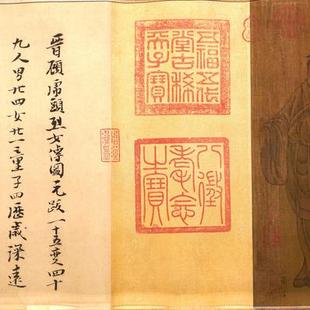 五福五代
堂古稀
天子寶
八徵
耄念
之寶
晉顧虎頭烈女傳圖元跋一十五變四十
九人男廿四女廿一童子四歷歲深遠